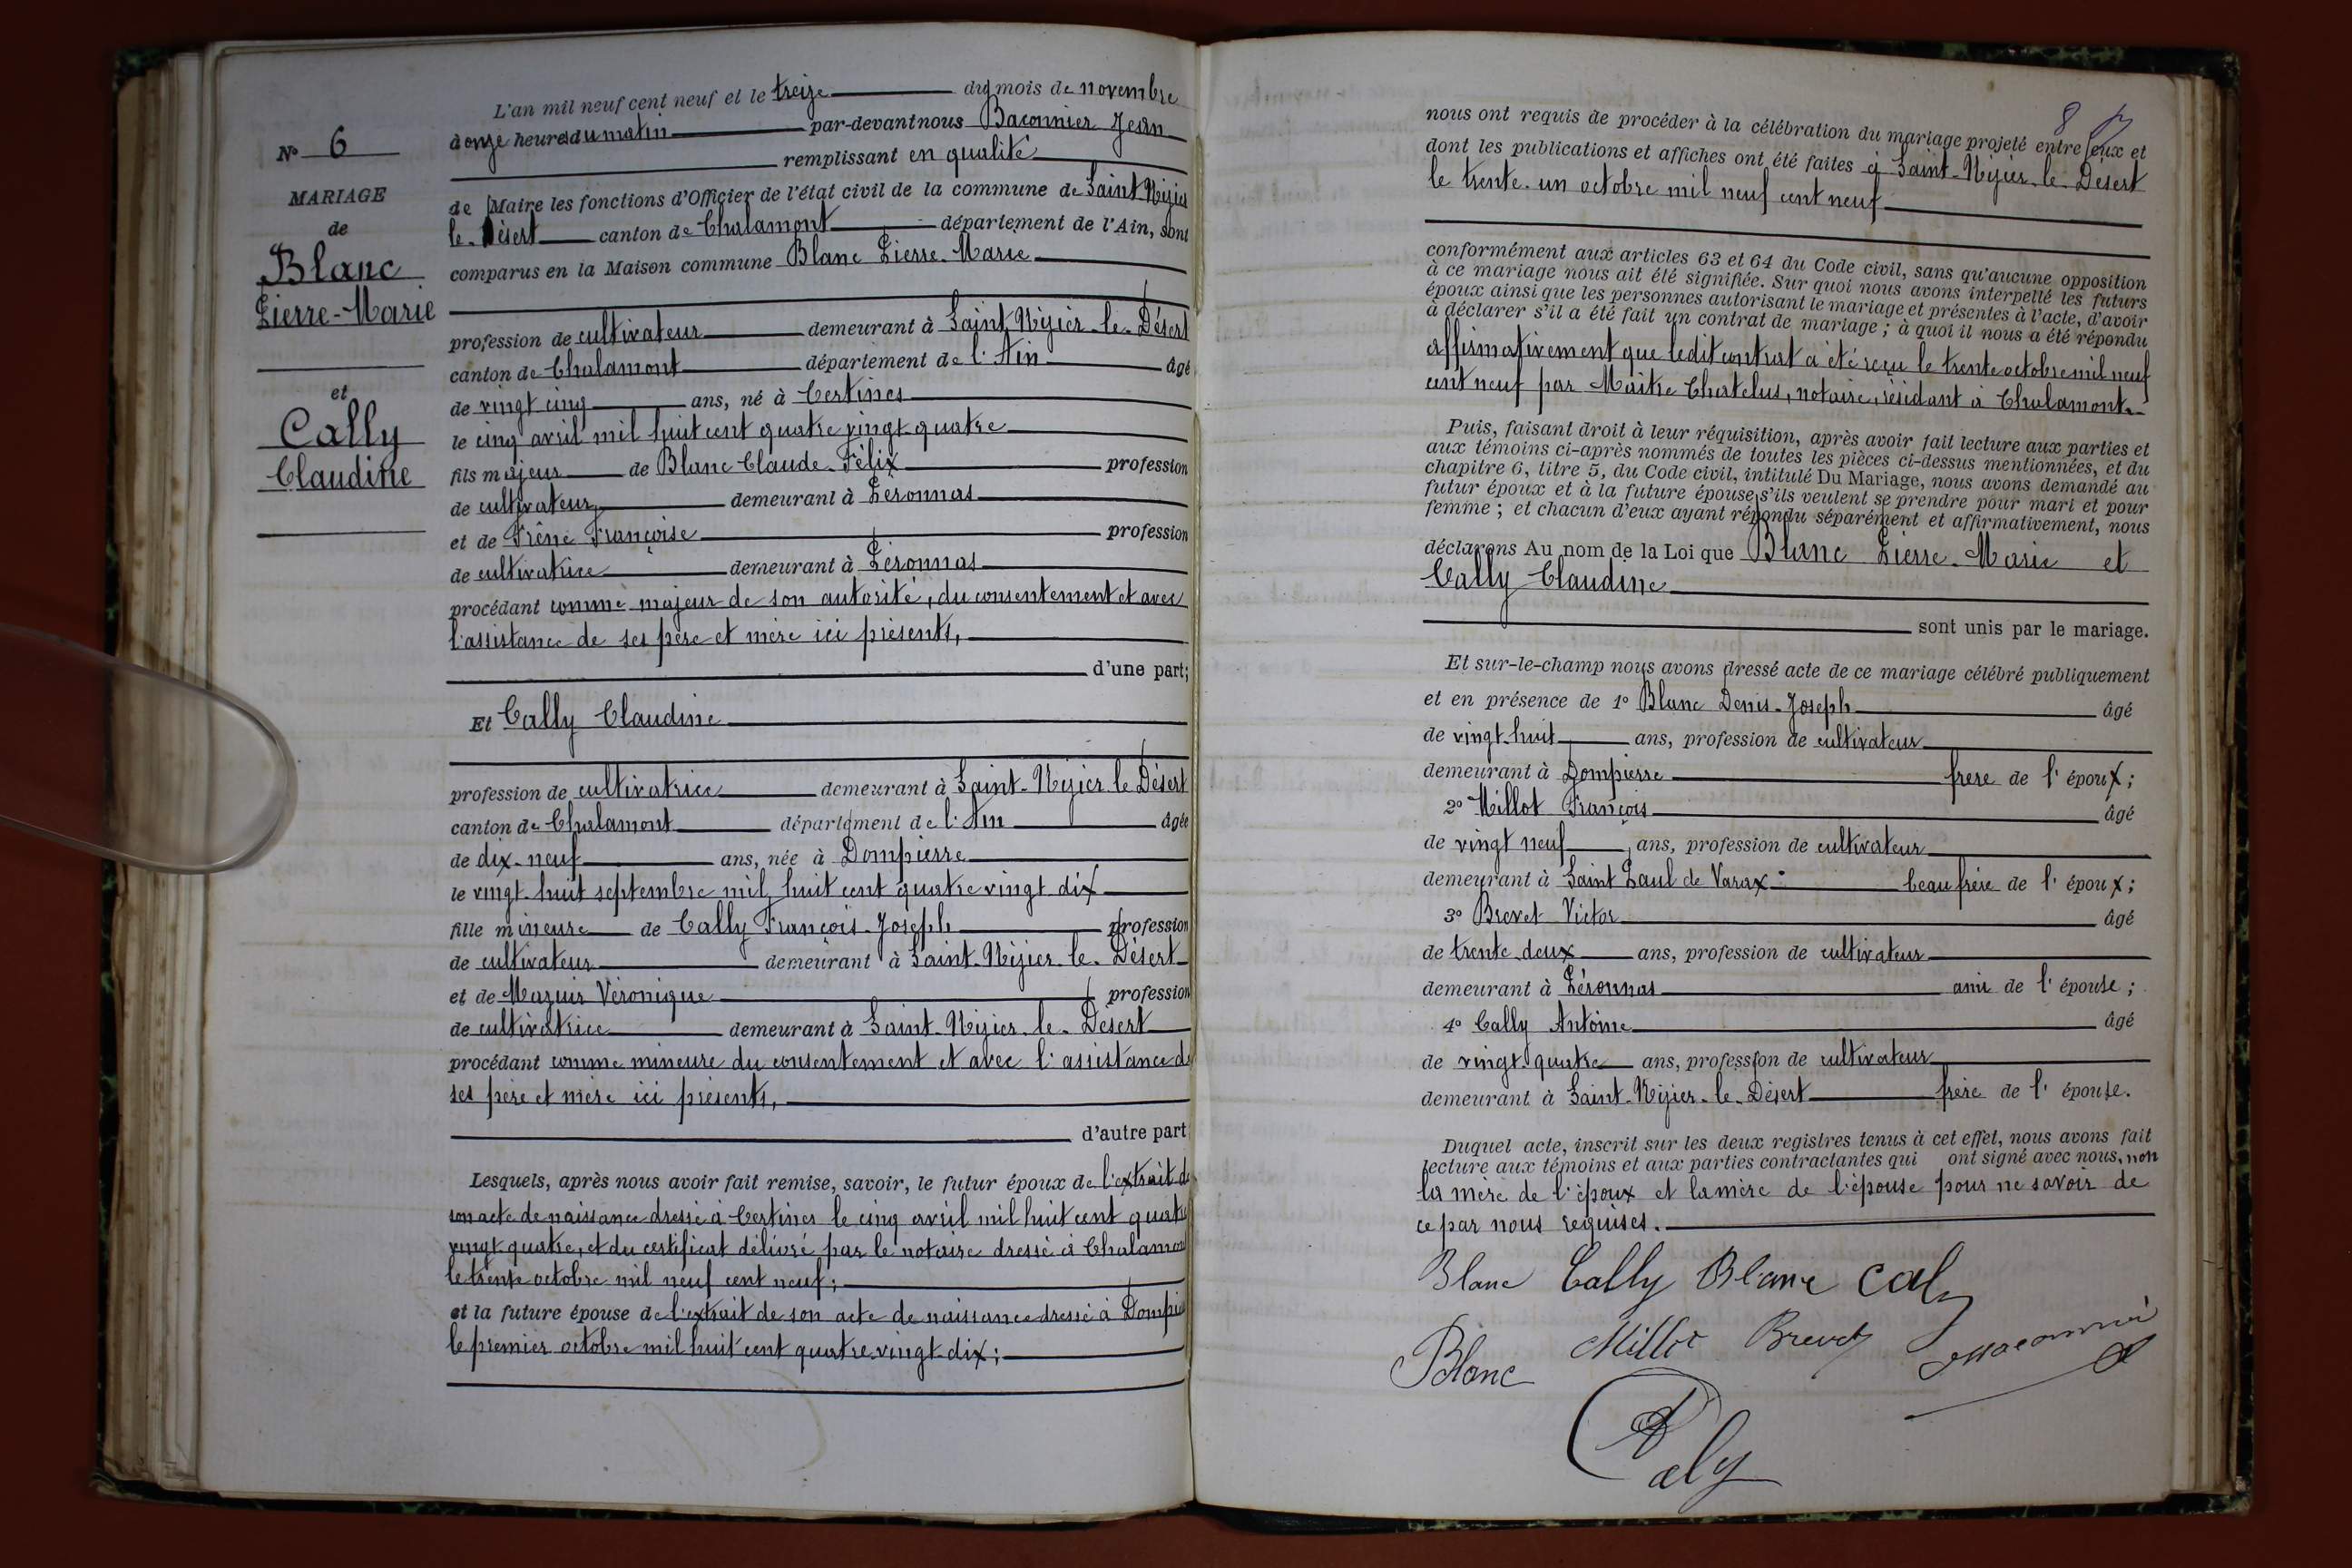 N° 6
MARIAGE
de
Blanc
Pierre-Marie
et
Cally
Claudine
L'an mil neuf cent neuf et le treize du mois de novembre
à onze heures du matin par-devant nous Baconnier Jean
remplissant en qualité
de Maire les fonctions d'Officier de l'état civil de la commune de Saint Nizier
le Désert canton de Chalamont département de l'Ain, sont
comparus en la Maison commune Blanc Pierre-Marie
profession de cultivateur demeurant à Saint Nizier-le-Désert
canton de Chalamont département de l'Ain âgé
de vingt cinq ans, né à Certines
le cinq avril mil huit cent quatre vingt-quatre
fils majeur de Blanc Claude-Félix profession
de cultivateur demeurant à Péronnas
et de Frêne Françoise profession
de cultivatrice demeurant à Péronnas
procédant comme majeur de son autorité, du consentement et avec
l'assistance de ses père et mère ici présents,
d'une part;
Et Cally Claudine
profession de cultivatrice demeurant à Saint-Nizier le Désert
canton de Chalamont département de l'Ain âgée
de dix-neuf ans, née à Dompierre
le vingt-huit septembre mil huit cent quatre vingt dix
fille mineure de Cally François-Joseph profession
de cultivateur demeurant à Saint-Nizier-le-Désert
et de Mazuir Véronique profession
de cultivatrice demeurant à Saint-Nizier-le-Désert
procédant comme mineure du consentement et avec l'assistance de
ses père et mère ici présents,
d'autre part
Lesquels, après nous avoir fait remise, savoir, le futur époux de l'extrait de
son acte de naissance dressé à Certines le cinq avril mil huit cent quatre
vingt quatre, et du certificat délivré par le notaire dressé à Chalamont
le trente octobre mil neuf cent neuf;
et la future épouse de l'extrait de son acte de naissance dressé à Dompierre
le premier octobre mil huit cent quatre-vingt-dix;
8
nous ont requis de procéder à la célébration du mariage projeté entre eux et
dont les publications et affiches ont été faites à Saint-Nizier-le-Désert
le trente-un octobre mil neuf cent neuf
conformément aux articles 63 et 64 du Code civil, sans qu'aucune opposition
à ce mariage nous ait été signifiée. Sur quoi nous avons interpellé les futurs
époux ainsi que les personnes autorisant le mariage et présentes à l'acte, d'avoir
à déclarer s'il a été fait un contrat de mariage; à quoi il nous a été répondu
affirmativement que ledit contrat a été reçu le trente octobre mil neuf
cent neuf par Maître Chatelus, notaire, résidant à Chalamont.
Puis, faisant droit à leur réquisition, après avoir fait lecture aux parties et
aux témoins ci-après nommés de toutes les pièces ci-dessus mentionnées, et du
chapitre 6, titre 5, du Code civil, intitulé Du Mariage, nous avons demandé au
futur époux et à la future épouse s'ils veulent se prendre pour mari et pour
femme; et chacun d'eux ayant répondu séparément et affirmativement, nous
déclarons Au nom de la Loi que Blanc Pierre-Marie et
Cally Claudine
sont unis par le mariage.
Et sur-le-champ nous avons dressé acte de ce mariage célébré publiquement
et en présence de 1° Blanc Denis-Joseph âgé
de vingt-huit ans, profession de cultivateur
demeurant à Dompierre frère de l'époux;
2° Millot François âgé
de vingt neuf ans, profession de cultivateur
demeurant à Saint Paul de Varax beau frère de l'époux;
3° Brevet Victor âgé
de trente deux ans, profession de cultivateur
demeurant à Péronnas ami de l'épouse;
4° Cally Antoine âgé
de vingt quatre ans, profession de cultivateur
demeurant à Saint-Nizier-le-Désert frère de l'épouse.
Duquel acte, inscrit sur les deux registres tenus à cet effet, nous avons fait
lecture aux témoins et aux parties contractantes qui ont signé avec nous, non
la mère de l'époux et la mère de l'épouse pour ne savoir de
ce par nous requises.
Blanc Cally Blanc Caly
Blanc Millot Brevet Baconnier
Caly